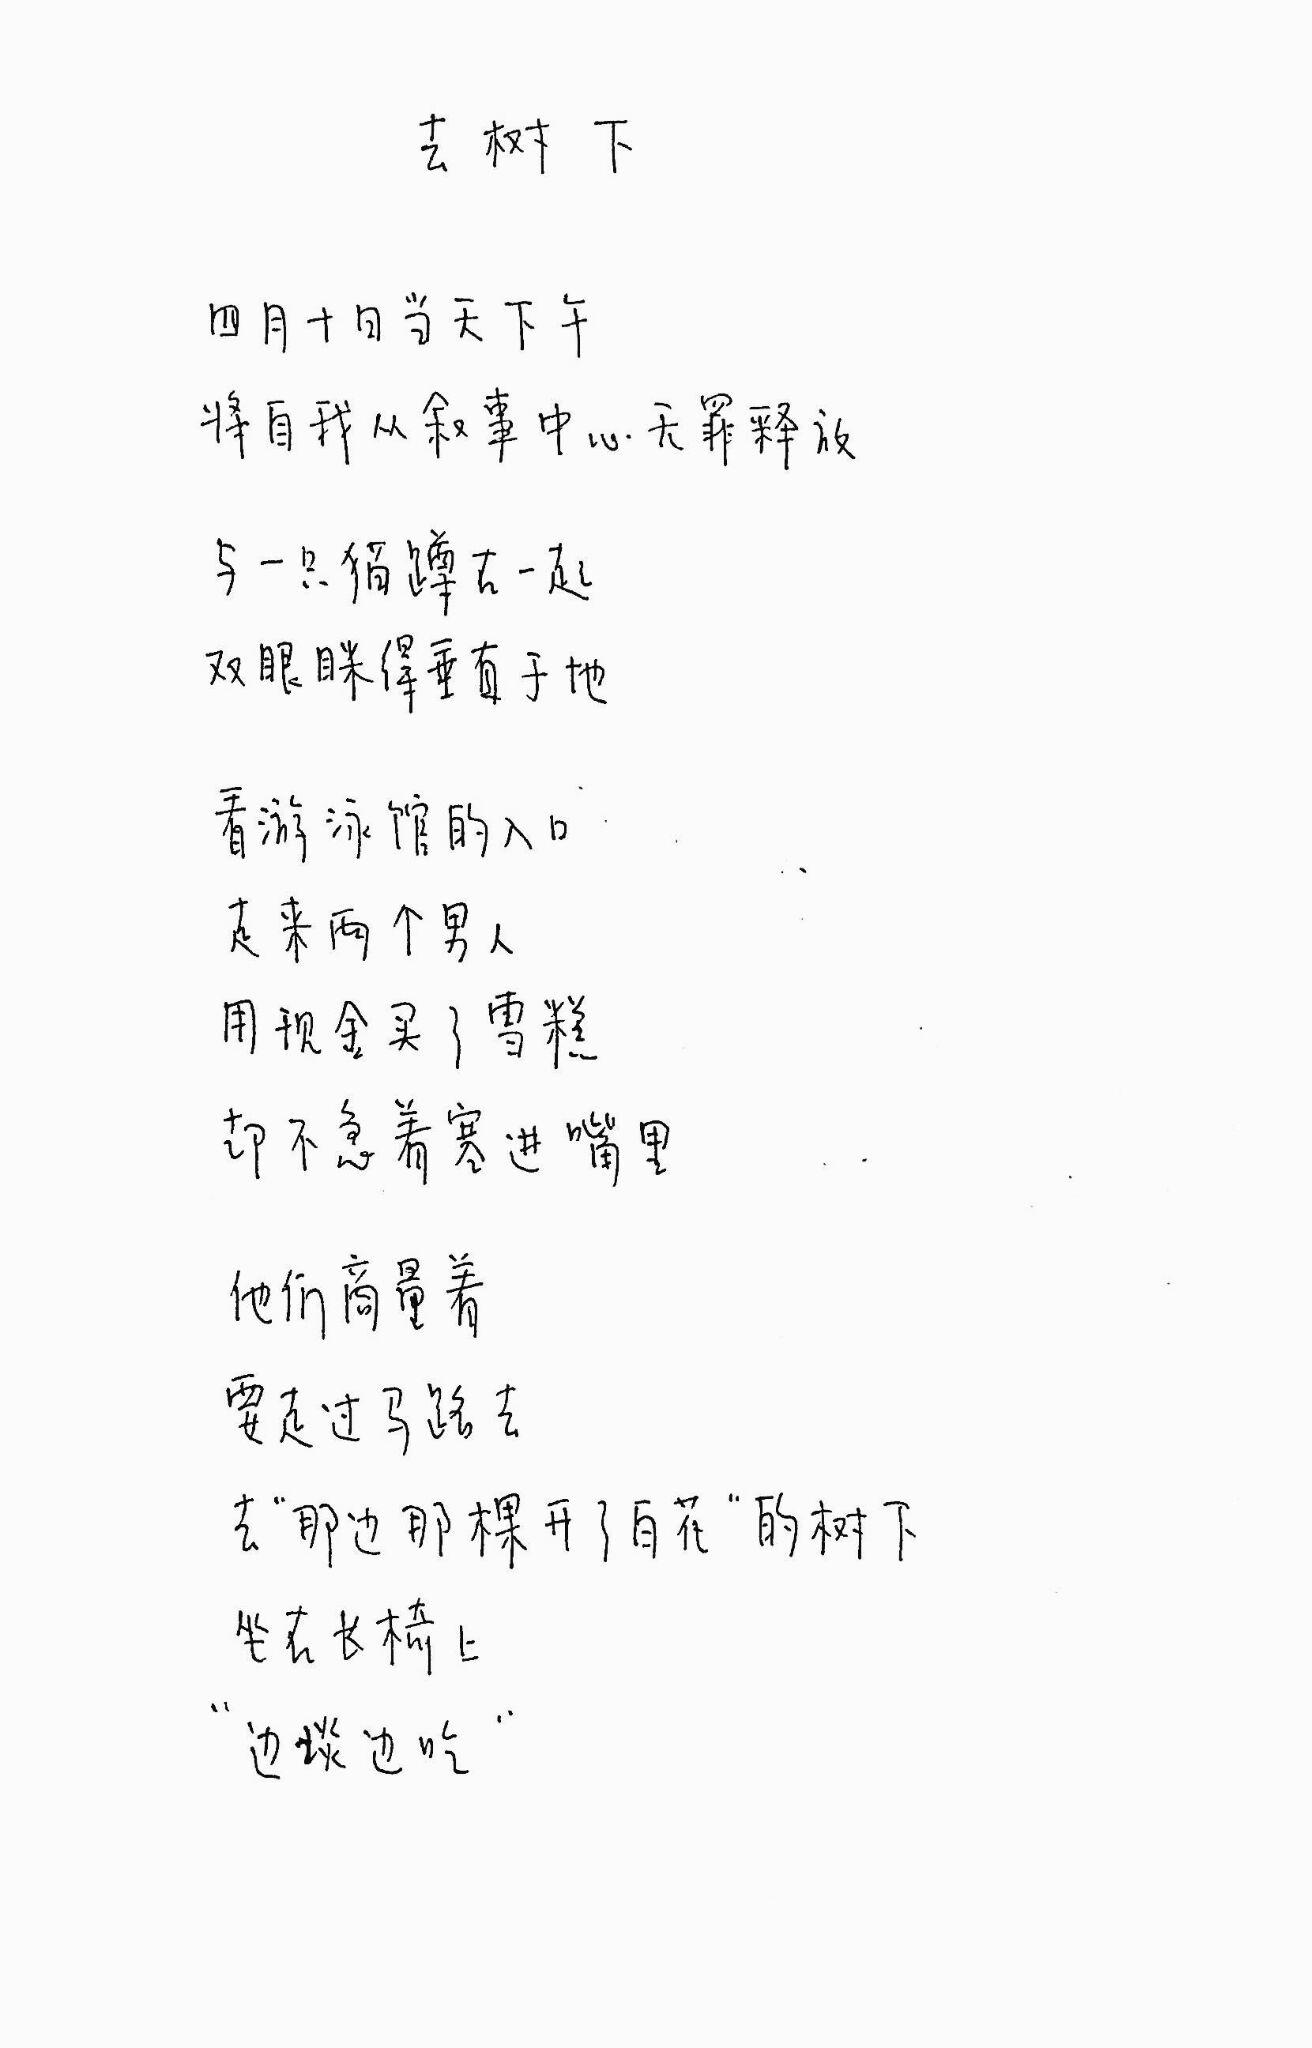 去树下
四月十日当天下午
将自我从叙事中心无罪释放
与一只猫蹲在一起
双眼眯得垂直于地
看游泳馆的入口
走来两个男人
用现金买了雪糕
却不急着塞进嘴里
他们商量着
要走过马路去
去“那边那棵开了白花”的树下
坐在长椅上
“边谈边吃”